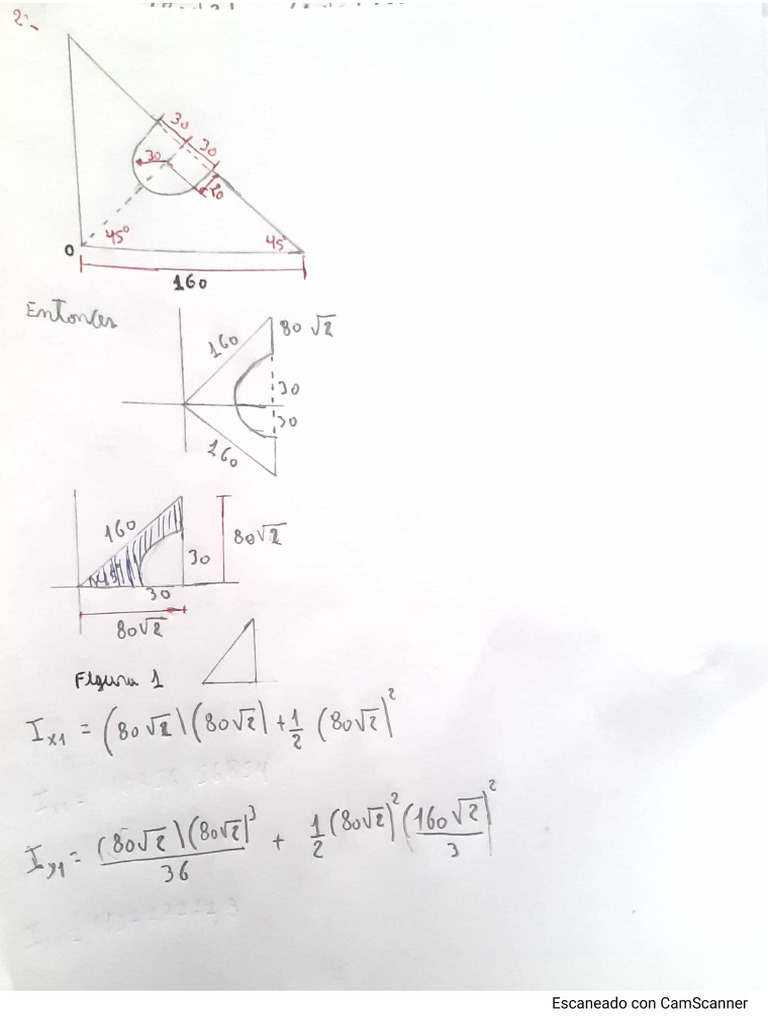 2-
30
30
30
20
45°
45°
O
160
Entonces
160
80 √2
30
30
160
160
80√2
30
45°
30
80√2
Figura 1
I x1 = (80√2)(80√2) + 1/2 (80√2)²
I y1 = (80√2)(80√2)³/36 + 1/2 (80√2)² (160√2/3)²
Escaneado con CamScanner